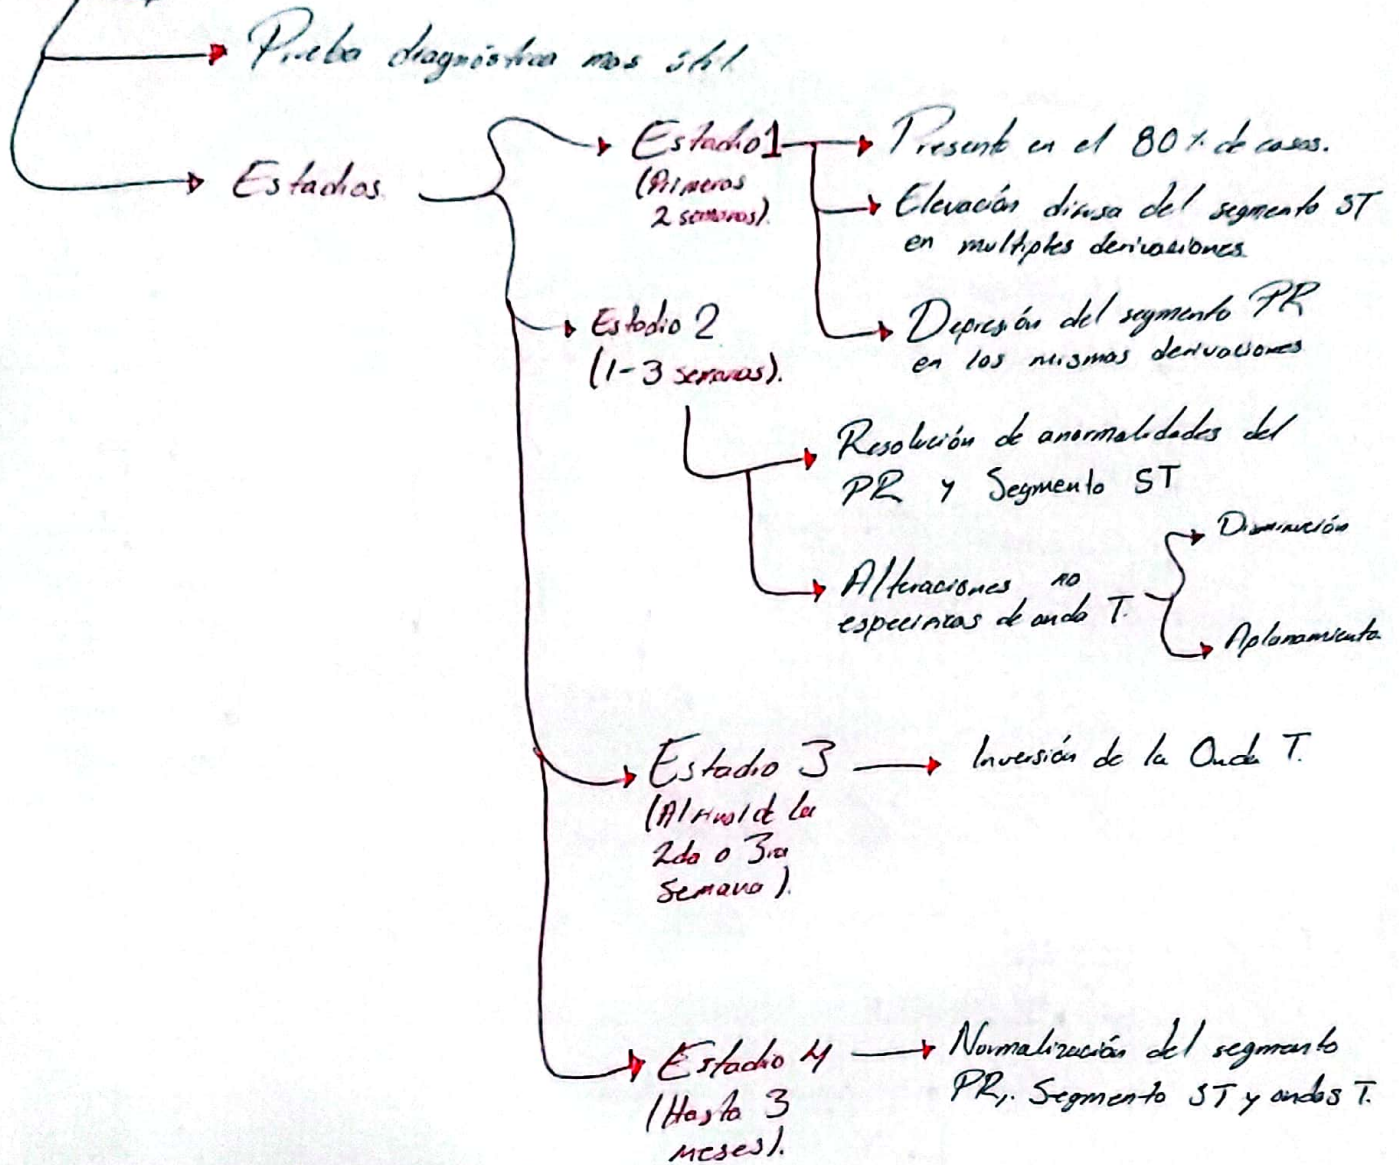 Prueba diagnóstica mas útil
Estadios.
Estadio 1
(Primeros
2 semanas).
Presente en el 80% de casos.
Elevación difusa del segmento ST
en multiples derivaciones
Depresión del segmento PR
en las mismas derivaciones
Estadio 2
(1-3 semanas).
Resolución de anormalidades del
PR y Segmento ST
Alteraciones no
especificas de onda T.
Disminución
Aplanamiento
Estadio 3
(Al final de la
2da o 3ra
semana).
Inversión de la Onda T.
Estadio 4
(Hasta 3
meses).
Normalización del segmento
PR, Segmento ST y ondas T.